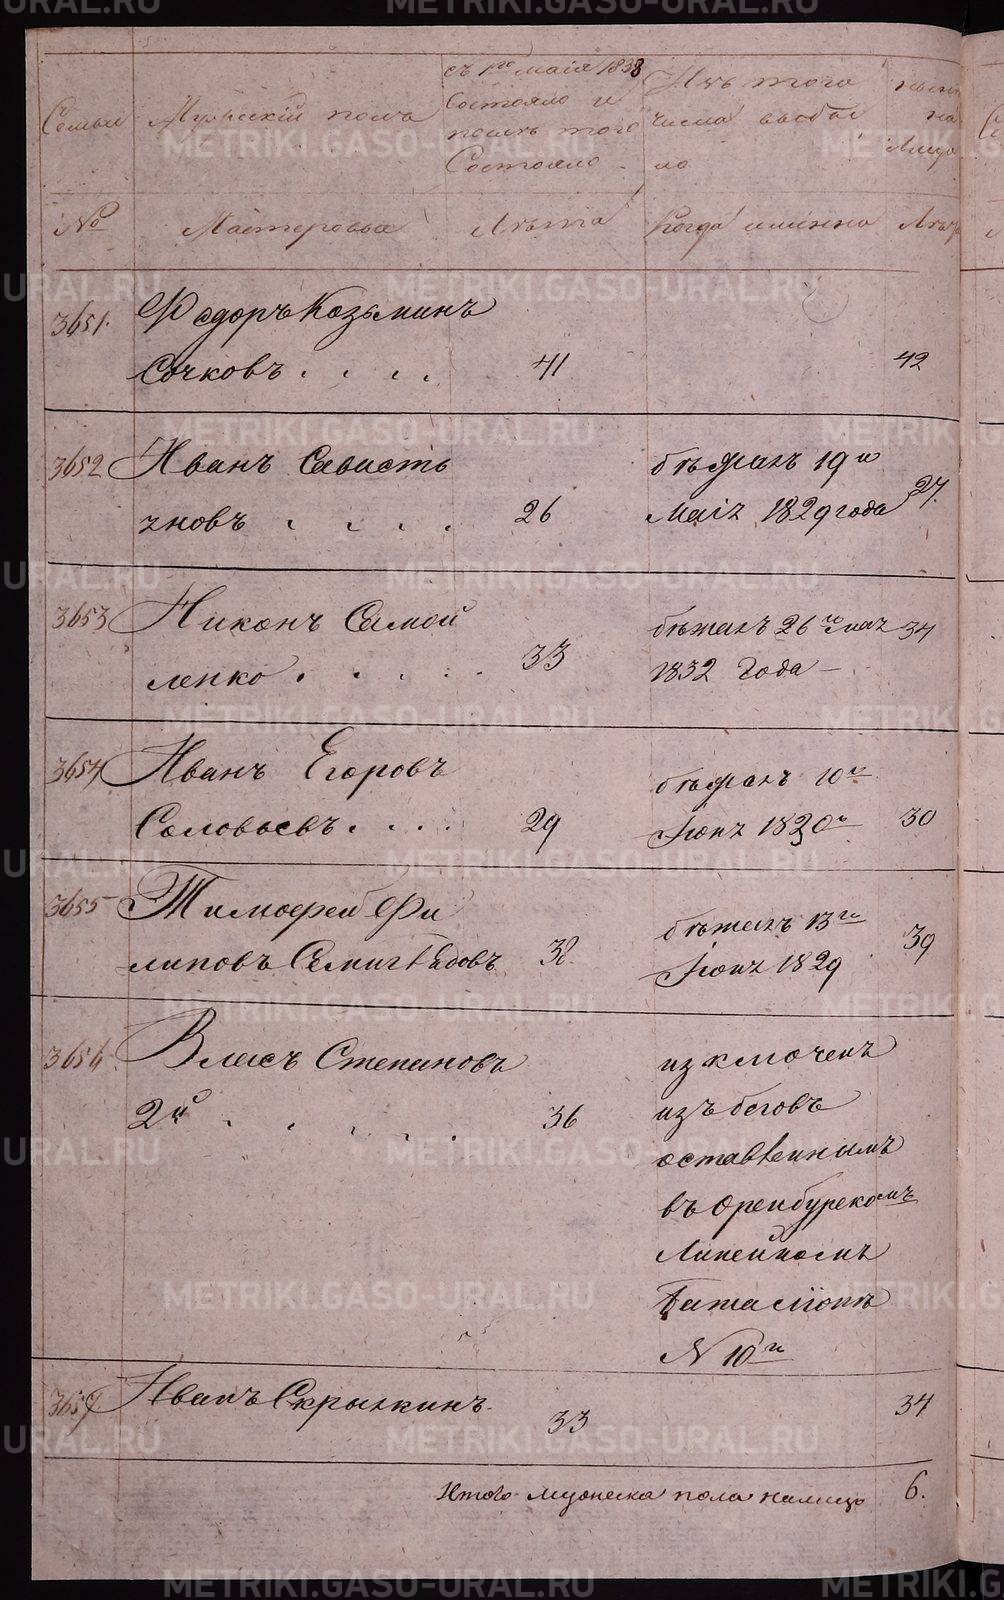 Семьи
Мужескій полъ
съ 1го маія 1838
Состояло и
послѣ того
Состояло
Изъ того
числа выбы
ло
на
лицо
№
Мастеровые
Лѣта
Когда именно
Лѣта
3651.
Федоръ Козьминъ
Сочковъ . . . .
41
42
3652
Иванъ Савость
яновъ . . . .
26
бѣжалъ 19го
Маія 1829 года
27.
3653
Никонъ Самой
ленко . . . . .
33
бѣжалъ 26го мая
1832 года
34
3654
Иванъ Егоровъ
Соловьевъ . . . .
29
бѣжалъ 10го
Іюня 1830го
30
3655
Тимофей Фи
липовъ
38
бѣжалъ 13го
Іюня 1829
39
3656
Власъ Степановъ
2й . . . . .
36
изключенъ
изъ беговъ
оставленнымъ
въ Оренбурскомъ
Линейномъ
Баталіонѣ
№ 10й
3657
Иванъ Скрыпкинъ
33
34
Итого мужеска пола налицо 6.
METRIKI.GASO-URAL.RU